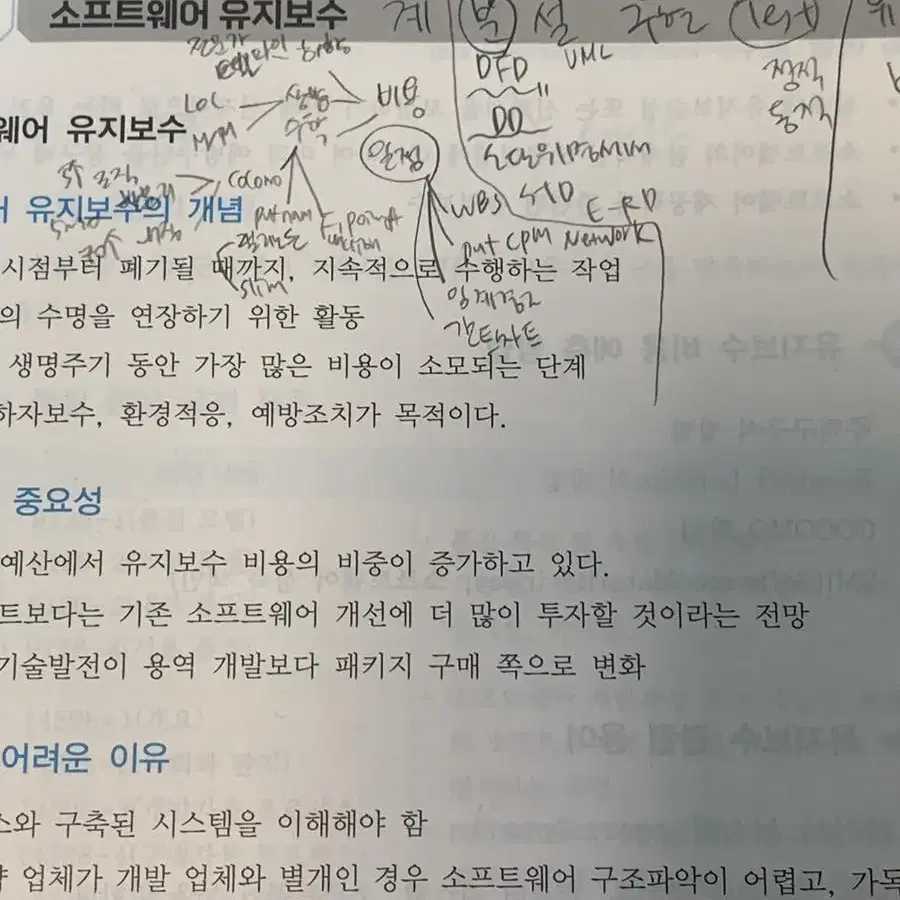 소프트웨어 유지보수
계 분 설 구현 test 유
전문가 델파이 하향
DFD UML
정적
동적
LOC
상향
수학
비용
DD
웨어 유지보수
M/M
일정
소단위명세서
COCOMO
WBS STD E-RD
putnam
F, point
어 유지보수의 개념
put CPM Network
시점부터 폐기될 때까지, 지속적으로 수행하는 작업
slim
임계경로
의 수명을 연장하기 위한 활동
간트차트
생명주기 동안 가장 많은 비용이 소모되는 단계
하자보수, 환경적응, 예방조치가 목적이다.
중요성
예산에서 유지보수 비용의 비중이 증가하고 있다.
트보다는 기존 소프트웨어 개선에 더 많이 투자할 것이라는 전망
기술발전이 용역 개발보다 패키지 구매 쪽으로 변화
어려운 이유
소와 구축된 시스템을 이해해야 함
약 업체가 개발 업체와 별개인 경우 소프트웨어 구조파악이 어렵고, 가독